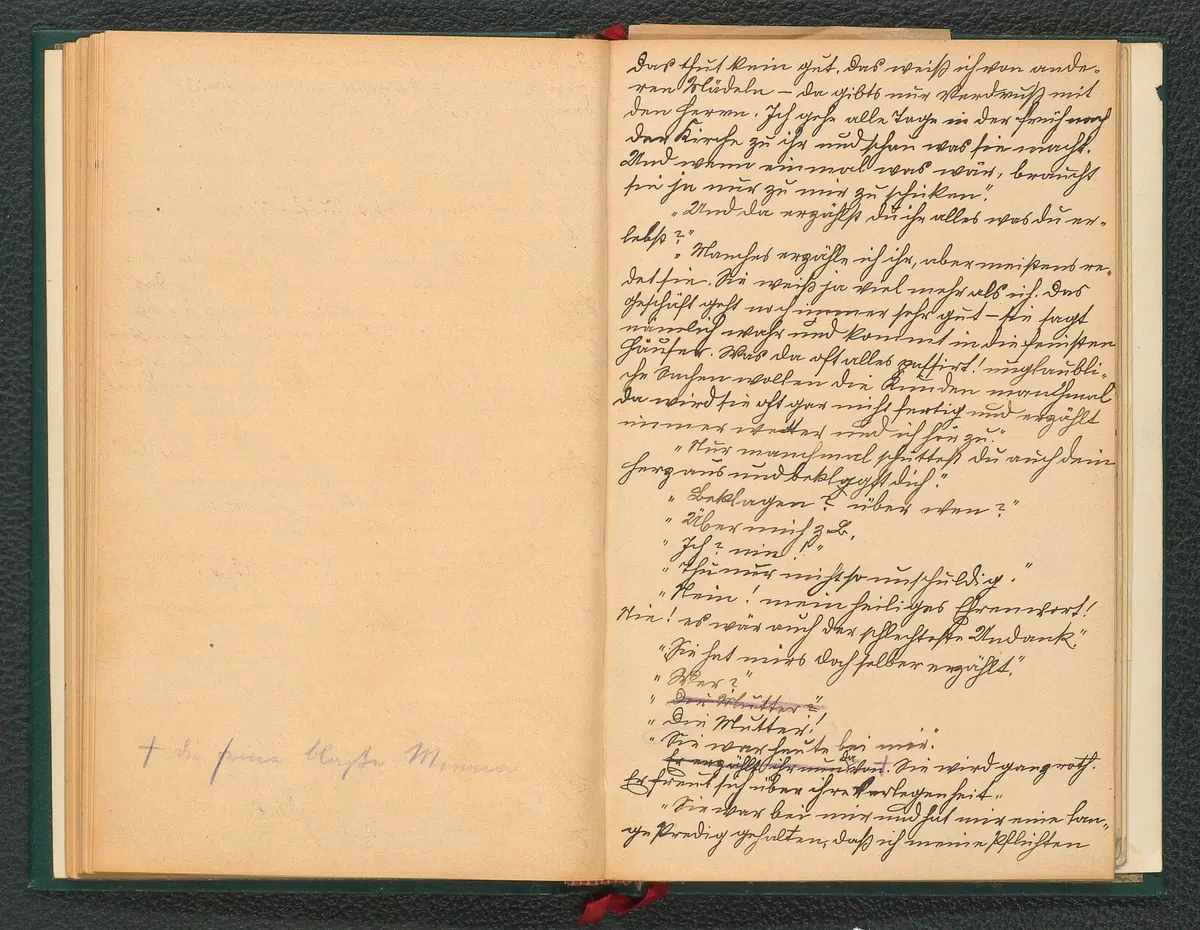 † die feine blaße Minna
das thut kein gut. das weiß ich von ande-
ren Mädeln – da gibts nur Verdruß mit
den Herrn. Ich gehe alle Tage in der früh nach
der Kirche zu ihr und schau was sie macht.
Und wenn einmal was wär, braucht
sie ja nur zu mir zu schicken."
"Und da erzählst du ihr alles was du er-
lebst?"
"Manches erzähle ich ihr, aber meistens re-
det sie. Sie weiß ja viel mehr als ich. Das
Geschäft geht noch immer sehr gut – sie sagt
nämlich wahr und kommt in die feinsten
Häuser. Was da oft alles passirt! unglaubli-
che Sachen wollen die Kunden manchmal
da wird sie oft gar nicht fertig und erzählt
immer weiter und ich hör zu."
"Nur manchmal schüttest du auch dein
Herz aus und beklagst dich."
"Beklagen? über wen?"
"Über mich z.B.
"Ich? nie!"
"Thu nur nicht so unschuldig."
"Nein! mein heiliges Ehrenwort!
Nie! es wär auch der schlechteste Undank."
"Sie hat mirs doch selber erzählt."
"Wer?"
"Die Mutter?"
"Die Mutter!
"Sie war heute bei mir."
Er erzählt ihr nun davon †. Sie wird ganz roth.
Er freut sich über ihre Verlegenheit.
"Sie war bei mir und hat mir eine lan-
ge Predig gehalten, daß ich meine Pflichten